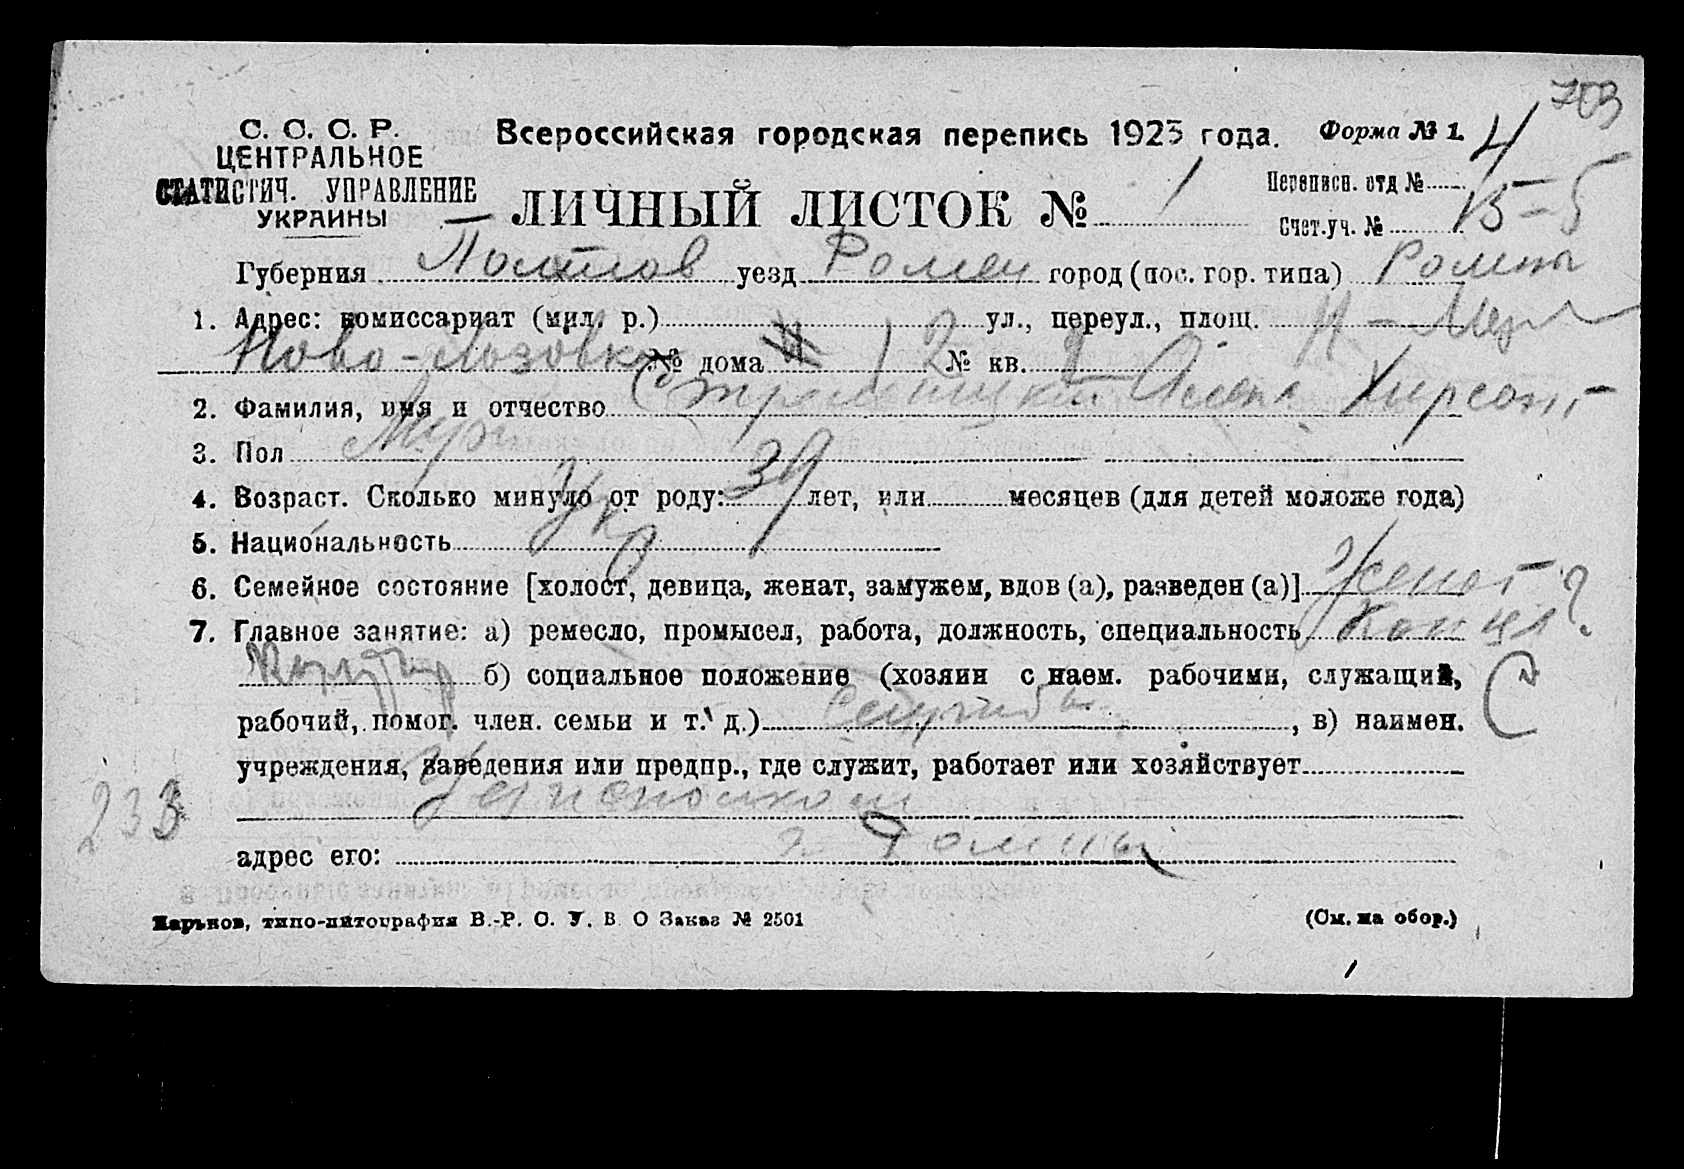 703
С. С. С. Р.
ЦЕНТРАЛЬНОЕ
СТАТИСТИЧ. УПРАВЛЕНИЕ
УКРАИНЫ
Всероссийская городская перепись 1923 года.
Форма № 1.
4
ЛИЧНЫЙ ЛИСТОК № 1
Переписн. отд №
Счет.уч. № 15-5
Губерния Полтав уезд Ромен город (пос. гор. типа) Ромны
1. Адрес: комиссариат (мил. р.) ул., переул., площ.
Ново-Лозовка № дома 12 № кв.
2. Фамилия, имя и отчество
3. Пол Муж
4. Возраст. Сколько минуло от роду: 39 лет, или месяцев (для детей моложе года)
5. Национальность Укр
6. Семейное состояние [холост, девица, женат, замужем, вдов (а), разведен (а)] Женат
7. Главное занятие: а) ремесло, промысел, работа, должность, специальность
б) социальное положение (хозяин с наем. рабочими, служащий,
рабочий, помог. член. семьи и т. д.) , в) наимен.
учреждения, заведения или предпр., где служит, работает или хозяйствует
233
адрес его: г Ромны
Харьков, типо-литография В.-Р. О. У. В О Заказ № 2501
(См. на обор.)
1